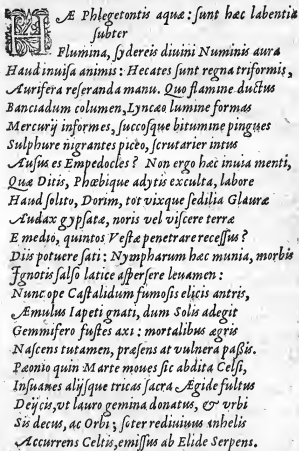 HÆ Phlegetontis aquæ: sunt hæc labentia
subter
Flumina, sydereis diuini Numinis aura
Haud inuisa animis: Hecates sunt regna triformis,
Aurifera reseranda manu. Quo flamine ductus
Banciadum columen, Lyncæo lumine formas
Mercurij informes, succosque bitumine pingues
Sulphure nigrantes piceo, scrutarier intus
Ausus es Empedocles? Non ergo hæc inuia menti,
Quæ Ditis, Phœbique adytis exculta, labore
Haud solito, Dorim, tot vixque sedilia Glauræ
Audax gypsatæ, noris vel viscere terræ
E medio, quintos Vestæ penetrare recessus?
Diis potuere sati: Nympharum hæc munia, morbis
Ignotis salso latice aspersere leuamen:
Nunc ope Castalidum fumosis elicis antris,
Æmulus Iapeti gnati, dum Solis adegit
Gemmifero fustes axi: mortalibus ægris
Nascens tutamen, præsens at vulnera paßis.
Pæonio quin Marte moues sic abdita Celsi,
Insuanes alijsque tricas sacra Ægide fultus
Deijcis, vt lauro gemina donatus, & vrbi
Sis decus, ac Orbi; soter rediuiuus anhelis
Accurrens Celtis, emissus ab Elide Serpens.